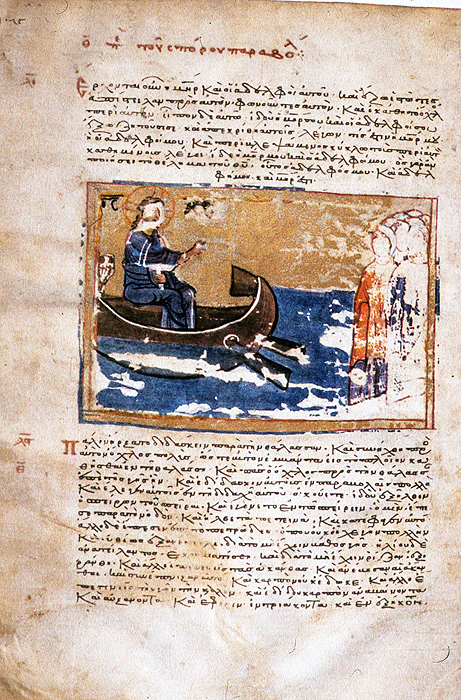 τοῦ σπόρου παραβολ
Ἔρχονται οὖν ἡ μηρ καὶ οἱ ἀδελφοὶ αὐτοῦ. καὶ ἔξω ἑστῶτες
ἀπέστειλαν πρὸς αὐτὸν φωνοῦντες αὐτόν. καὶ ἐκάθητο
περὶ αὐτὸν εἶπον δὲ αὐτῷ ἰδοὺ ἡ μηρ σου καὶ οἱ ἀδελφοί σου
ἔξω ζητοῦσί σε καὶ ἀπεκρίθη αὐτοῖς λέγων τίς ἐστιν ἡ μηρ μου
ἢ οἱ ἀδελφοί μου. Καὶ περιβλεψάμενος κύκλῳ τοὺς περὶ αὐτὸν
καθημένους λέγει ἴδε ἡ μηρ μου καὶ οἱ ἀδελφοί μου. ὃς γὰρ ἂν
ποιήσῃ τὸ θέλημα τοῦ θυ οὗτος ἀδελφός μου. Καὶ ἀδελ
φή μου. καὶ μηρ ἐστί
ΙϹ
Πάλιν ἤρξατο διδάσκειν παρὰ τὴν θάλασσαν. Καὶ συνήχθη πρὸς
αὐτὸν ὄχλος πολύς. ὥστε αὐτὸν ἐμβάντα εἰς τὸ πλοῖον κα
θῆσθαι ἐν τῇ θαλάσσῃ. Καὶ πᾶς ὁ ὄχλος πρὸς τὴν θάλασσαν
ἐπὶ τῆς γῆς ἦν. Καὶ ἐδίδασκεν αὐτοὺς ἐν παραβολαῖς πολλά
Καὶ ἔλεγεν αὐτοῖς ἐν τῇ διδαχῇ αὐτοῦ ἀκούετε. ἰδοὺ ἐξῆλθεν
ὁ σπείρων τοῦ σπεῖραι. Καὶ ἐγένετο ἐν τῷ σπείρειν. ὃ μὲν ἔπε
σε παρὰ τὴν ὁδόν. Καὶ ἦλθε τὰ πετεινά. Καὶ κατέφαγεν αὐτό
ἄλλο δὲ ἔπεσεν ἐπὶ τὸ πετρῶδες ὅπου οὐκ εἶχε γῆν πολλήν
Καὶ εὐθέως ἐξανέτειλε διὰ τὸ μὴ ἔχειν βάθος γῆς ἡλίου δὲ
ἀνατείλαντος ἐκαυματίσθη. καὶ διὰ τὸ μὴ ἔχειν ῥίζαν ἐξη
ράνθη. Καὶ ἄλλο ἔπεσεν εἰς τὰς ἀκάνθας. Καὶ ἀνέβησαν αἱ ἄκαν
θαι. καὶ συνέπνιξαν αὐτό. Καὶ καρπὸν οὐκ ἔδωκε. Καὶ ἄλλο ἔ
πεσεν εἰς τὴν γῆν τὴν καλήν. καὶ ἐδίδου καρπὸν ἀναβαίνοντα
Καὶ αὐξάνοντα. Καὶ ἔφερεν ἐν τριάκοντα καὶ ἐν ἑξήκοντ